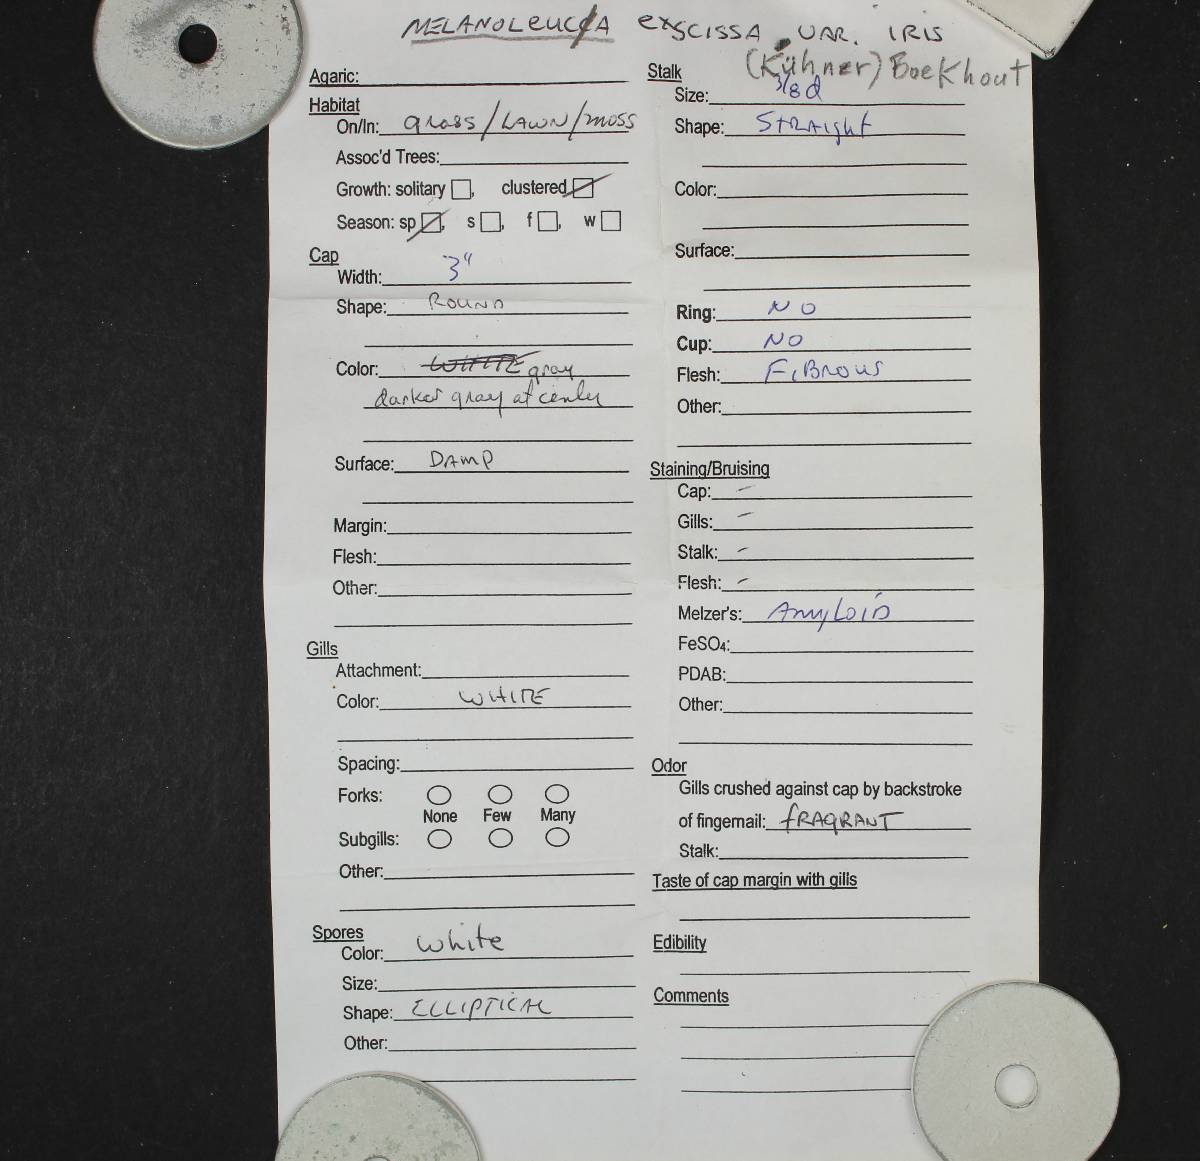 MELANOLEUCA EXSCISSA VAR. IRIS
(Kühner) Boekhout
Agaric:
Habitat
On/In: grass/LAWN/moss
Assoc'd Trees:
Growth: solitary , clustered
Season: sp , s , f , w
Cap
Width: 3"
Shape: ROUND
Color: WHITE gray
darker gray at center
Surface: DAMP
Margin:
Flesh:
Other:
Gills
Attachment:
Color: WHITE
Spacing:
Forks:
None Few Many
Subgills:
Other:
Spores
Color: white
Size:
Shape: ELLIPTICAL
Other:
Stalk
Size: 3/8d
Shape: STRAIght
Color:
Surface:
Ring: NO
Cup: NO
Flesh: FIBROUS
Other:
Staining/Bruising
Cap: -
Gills: -
Stalk: -
Flesh: -
Melzer's: AmyLoiD
FeSO₄:
PDAB:
Other:
Odor
Gills crushed against cap by backstroke
of fingernail: fRAGRANT
Stalk:
Taste of cap margin with gills
Edibility
Comments